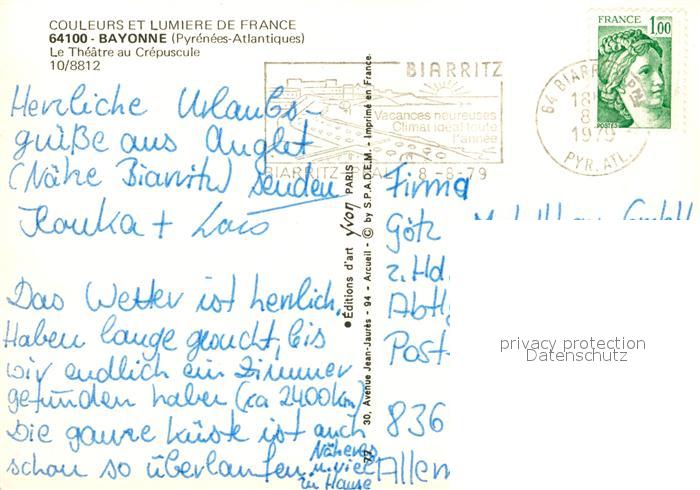 COULEURS ET LUMIERE DE FRANCE
64100 - BAYONNE (Pyrénées-Atlantiques)
Le Théâtre au Crépuscule
10/8812
Herzliche Urlaubs-
grüße aus Anglet
(Nähe Biarritz) senden
+ Lois
Das Wetter ist herrlich.
Haben lange gesucht, bis
wir endlich ein Zimmer
gefunden haben (ca 2400km)
Die ganze Küste ist auch
schon so überlaufen
Näheres
u. viel
zu Hause
BIARRITZ
Vacances heureuses
Climat idéal toute
l'année
BIARRITZ PPAL 8-8-79
64 BIARRITZ
18
8
1979
PYR. ATL.
FRANCE
1,00
POSTES
● Éditions d'art yvon PARIS
30, Avenue Jean-Jaurès - 94 - Arcueil - © by S.P.A.D.E.M. - Imprimé en France.
Firma
GmbH
Götz
z. Hd.
Abtl
Post-
836
Allem
privacy protection
Datenschutz